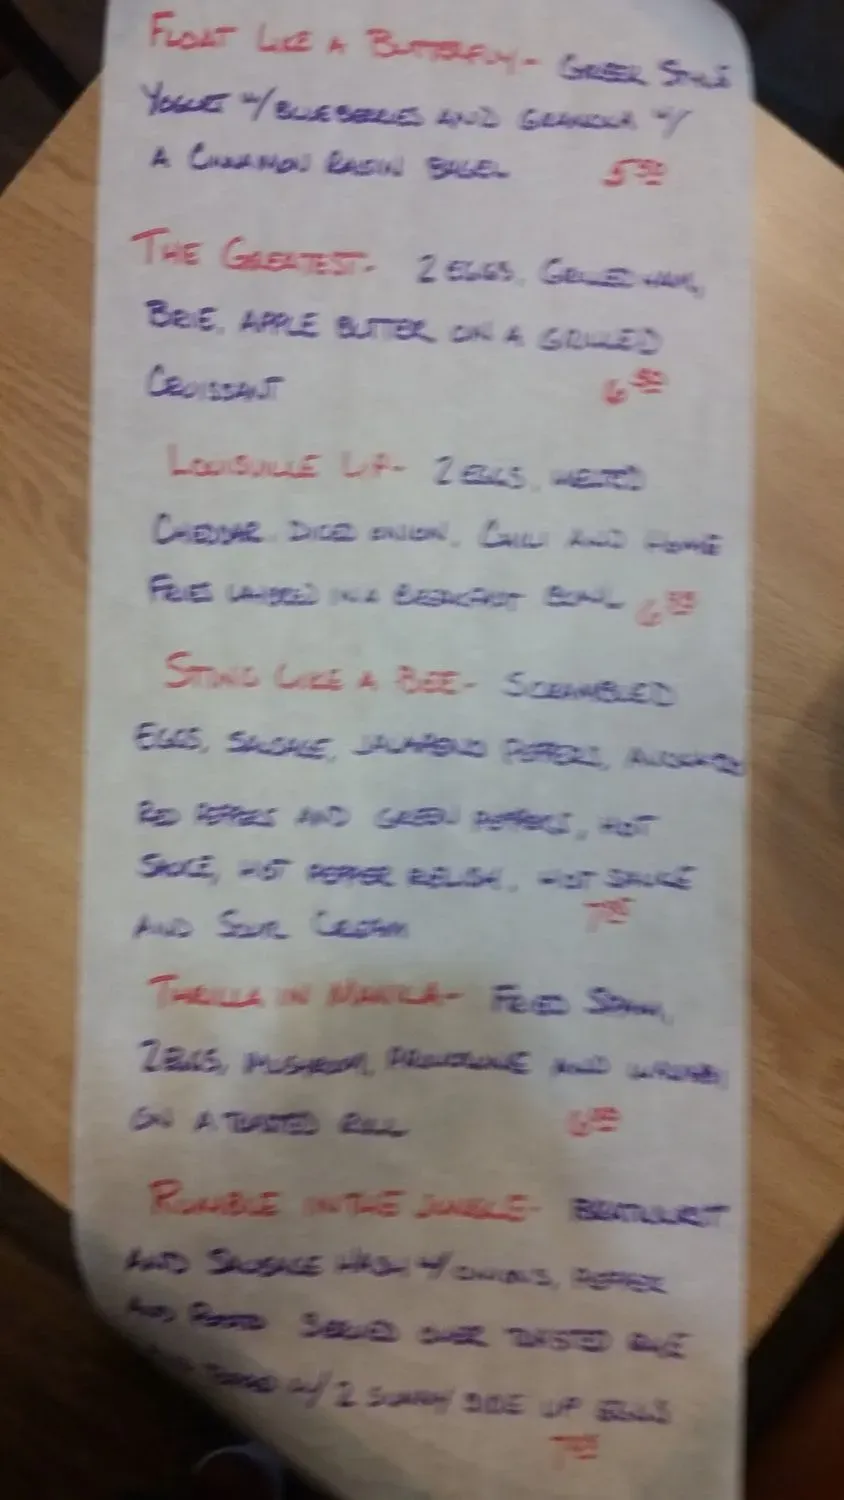 FLOAT LIKE A BUTTERFLY- GREEK STYLE
YOGURT W/ BLUEBERRIES AND GRANOLA W/
A CINNAMON RAISIN BAGEL 5.50
THE GREATEST- 2 EGGS, GRILLED HAM,
BRIE, APPLE BUTTER ON A GRILLED
CROISSANT 6.50
LOUISVILLE LIP- 2 EGGS, MELTED
CHEDDAR, DICED ONION, CHILI AND HOME
FRIES LAYERED IN A BREAKFAST BOWL 6
STING LIKE A BEE- SCRAMBLED
EGGS, SAUSAGE, JALAPENO PEPPERS, AVOCADO
RED PEPPERS AND GREEN PEPPERS, HOT
SAUCE, HOT PEPPER RELISH, HOT SAUCE
AND SOUR CREAM 7
THRILLA IN MANILA- FRIED SPAM,
2 EGGS, MUSHROOM, PROVOLONE AND
ON A TOASTED ROLL 6
RUMBLE IN THE JUNGLE- BRATWURST
AND SAUSAGE HASH W/ ONIONS, PEPPER
AND POTATO SERVED OVER TOASTED RYE
W/ 2 SUNNY SIDE UP EGGS
7